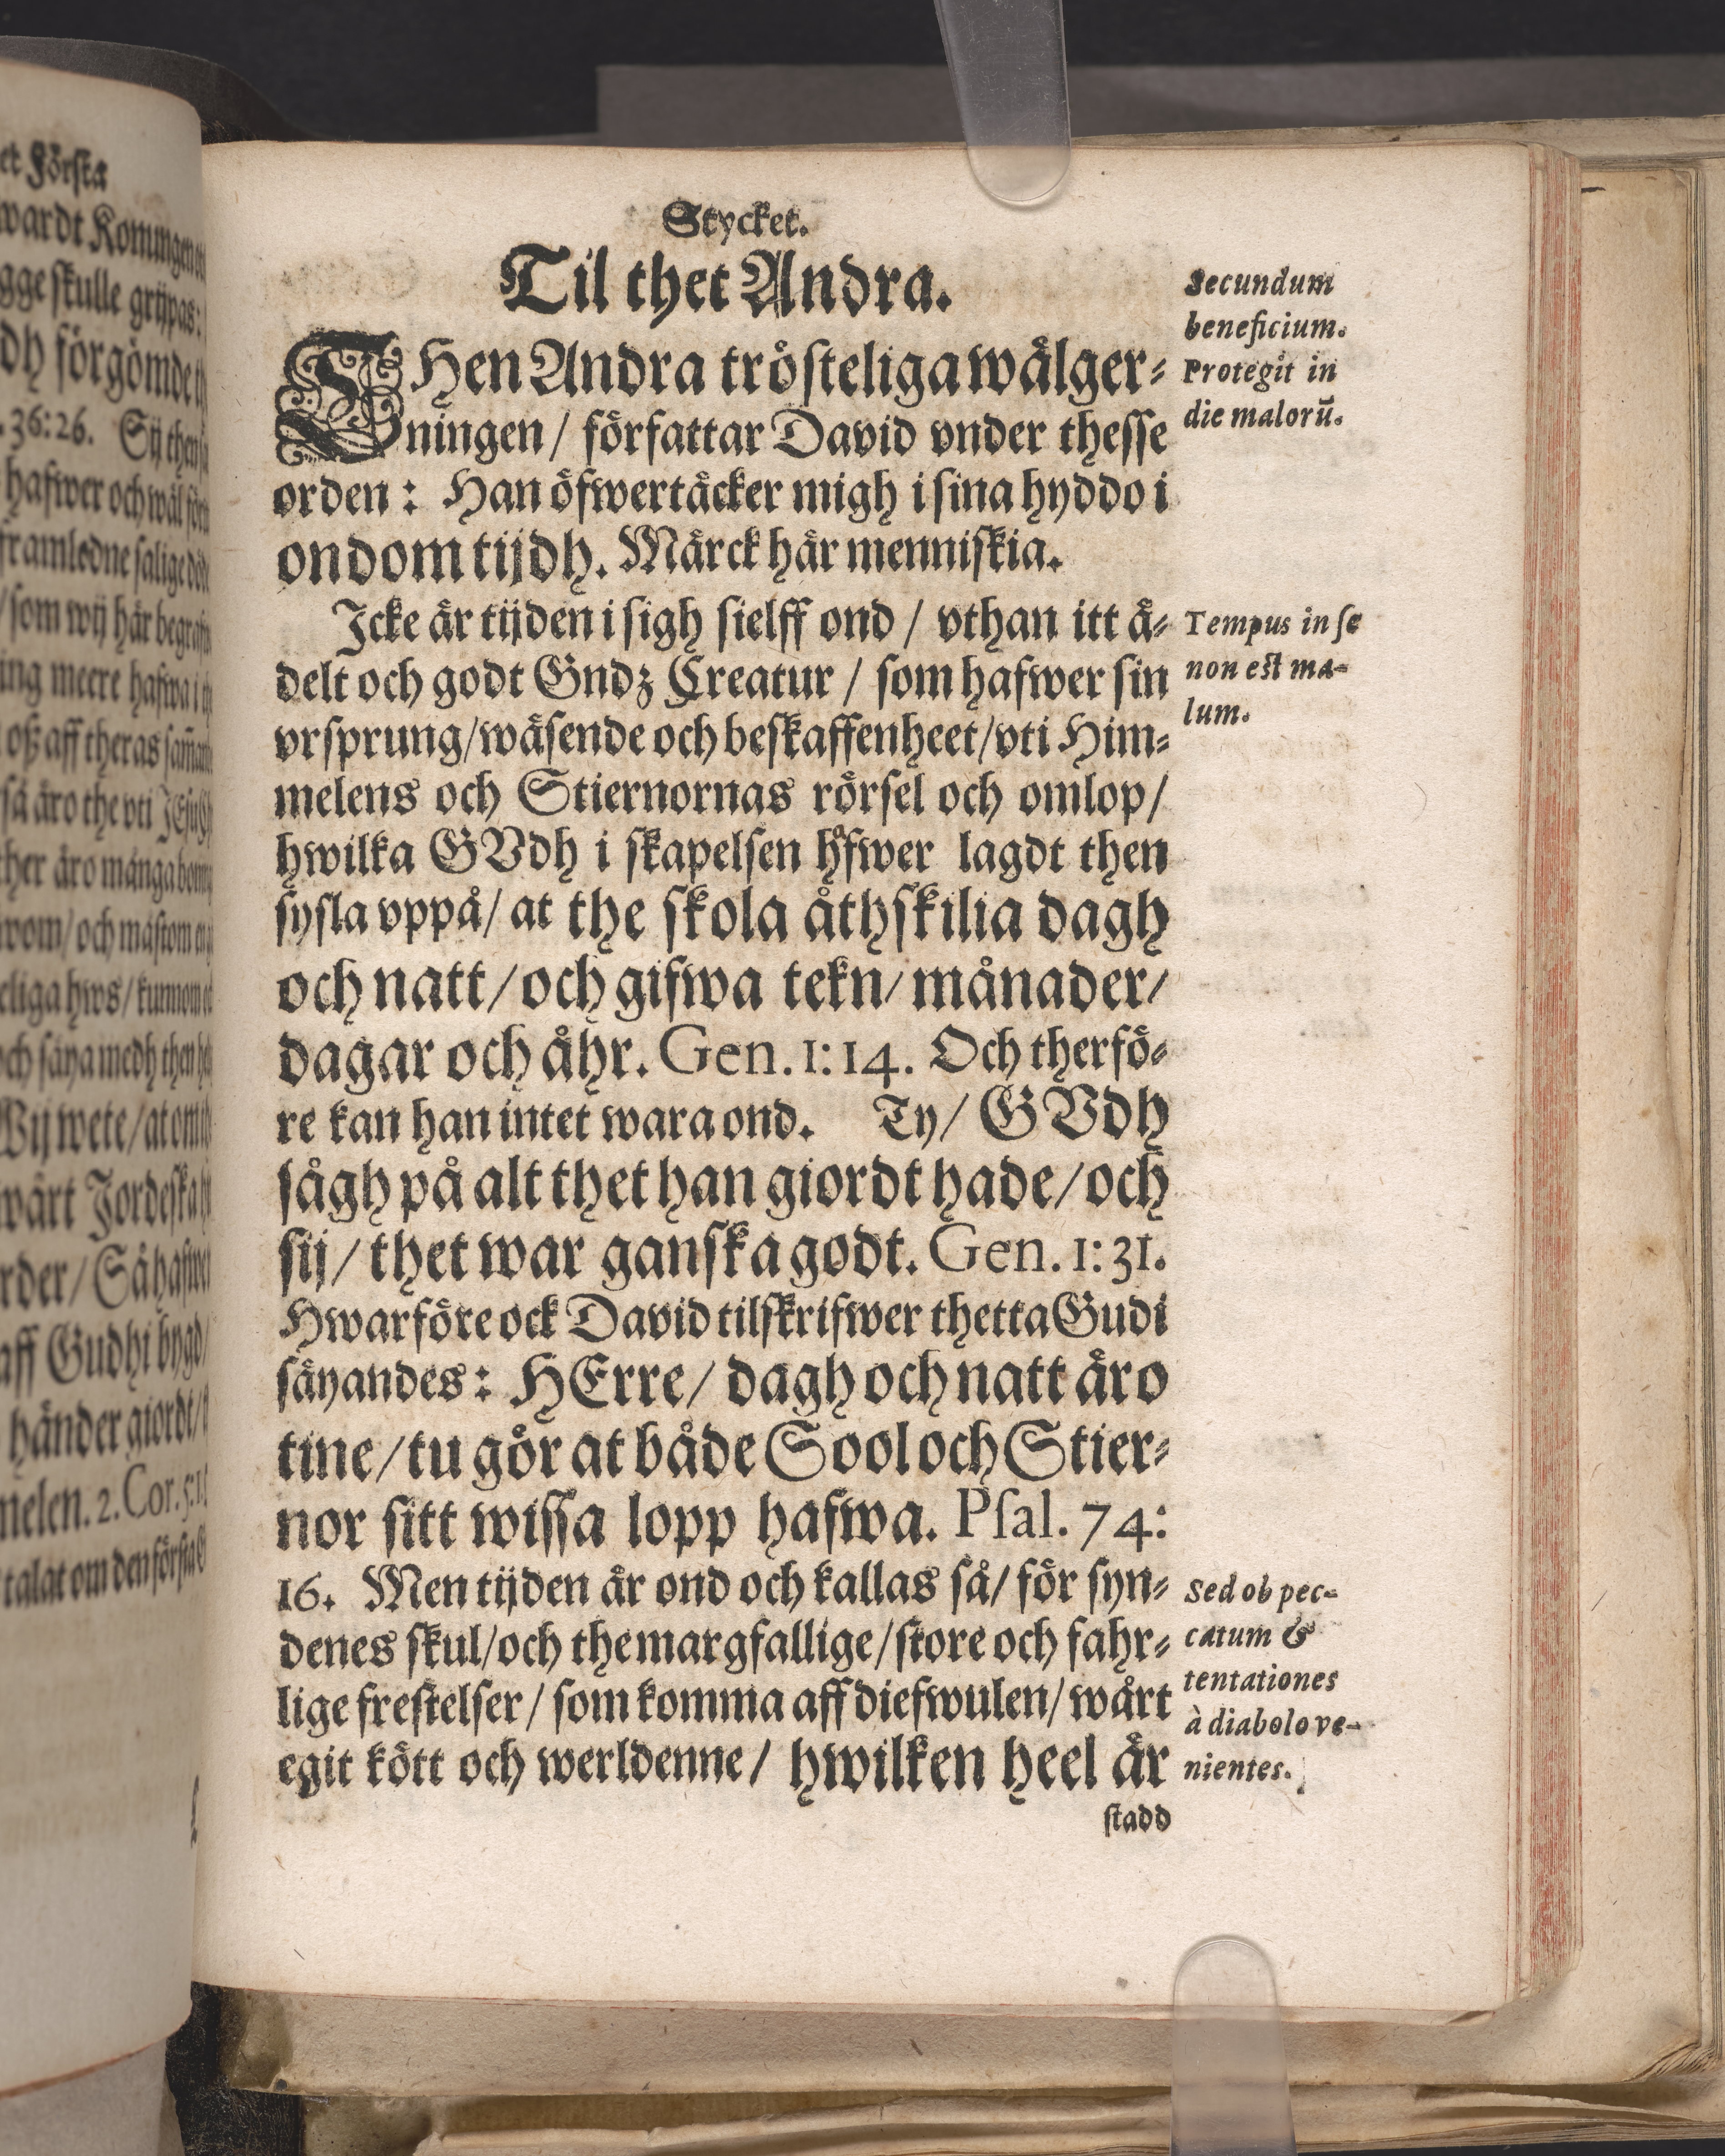 et Första
wardt
gge skulle grijpas:
dh förgömde
36:26. Sij
hafwer och wäl
framledne salige
som wij här
ing meere hafwa i
oß aff theras
så äro the vti
ther äro många
wom/ och mästom
eliga hws/ kunnom
och säya medh then
Wij wete/ at om
wårt
rder/ Så hafwe
aff Gudhi bygd/
händer giordt/
melen. 2. Cor. 5:1
talat om den första
Stycket.
Til thet Andra.
THen Andra trösteliga wälger-
ningen/ författar David vnder thesse
orden: Han öfwertäcker migh i sina hyddo i
ondom tijdh. Märck här menniskia.
Icke är tijden i sigh sielff ond / vthan itt ä-
delt och godt Gndz Creatur / som hafwer sin
vrsprung/wäsende och beskaffenheet/vti Him-
melens och Stiernornas rörsel och omlop/
hwilka GVdh i skapelsen håfwer lagdt then
sysla vppå/ at the skola åthskilia dagh
och natt/och gifwa tekn/ månader/
dagar och åhr. Gen. 1: 14. Och therfö-
re kan han intet wara ond. Ty/ GVdh
sågh på alt thet han giordt hade/och
sij/ thet war ganska godt. Gen. 1: 31.
Hwarföre ock David tilskrifwer thetta Gudi
säyandes: HErre/ dagh och natt äro
tine/tu gör at både Sool och Stier-
nor sitt wissa lopp hafwa. Psal. 74:
16. Men tijden är ond och kallas så/ för syn-
denes skul/och the margfallige/store och fahr-
lige frestelser/ som komma aff diefwulen/ wårt
egit kött och werldenne/ hwilken heel är
stadd
Secundum
beneficium.
Protegit in
die malorũ.
Tempus in se
non est ma-
lum.
Sed ob pec-
catum &
tentationes
à diabolo ve-
nientes.